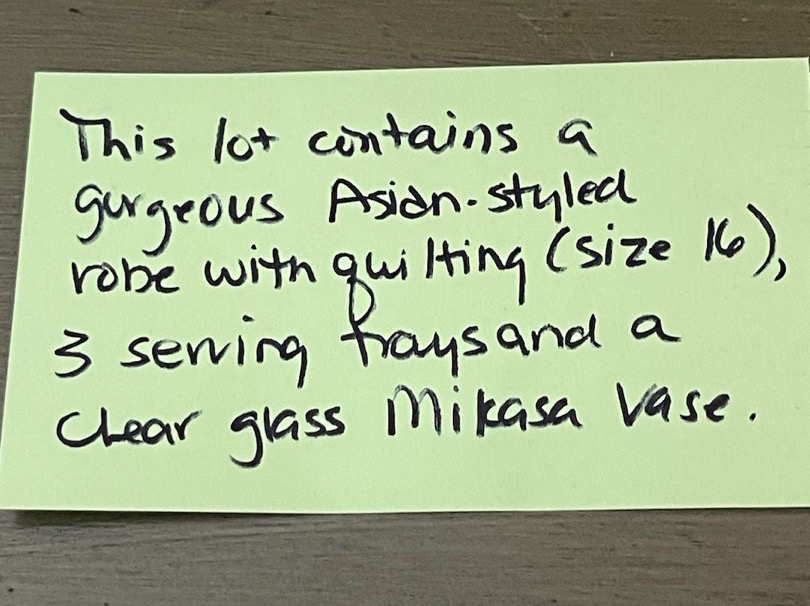 This lot contains a
gurgeous Asian-styled
robe with quilting (size 16),
3 serving trays and a
clear glass Mikasa Vase.